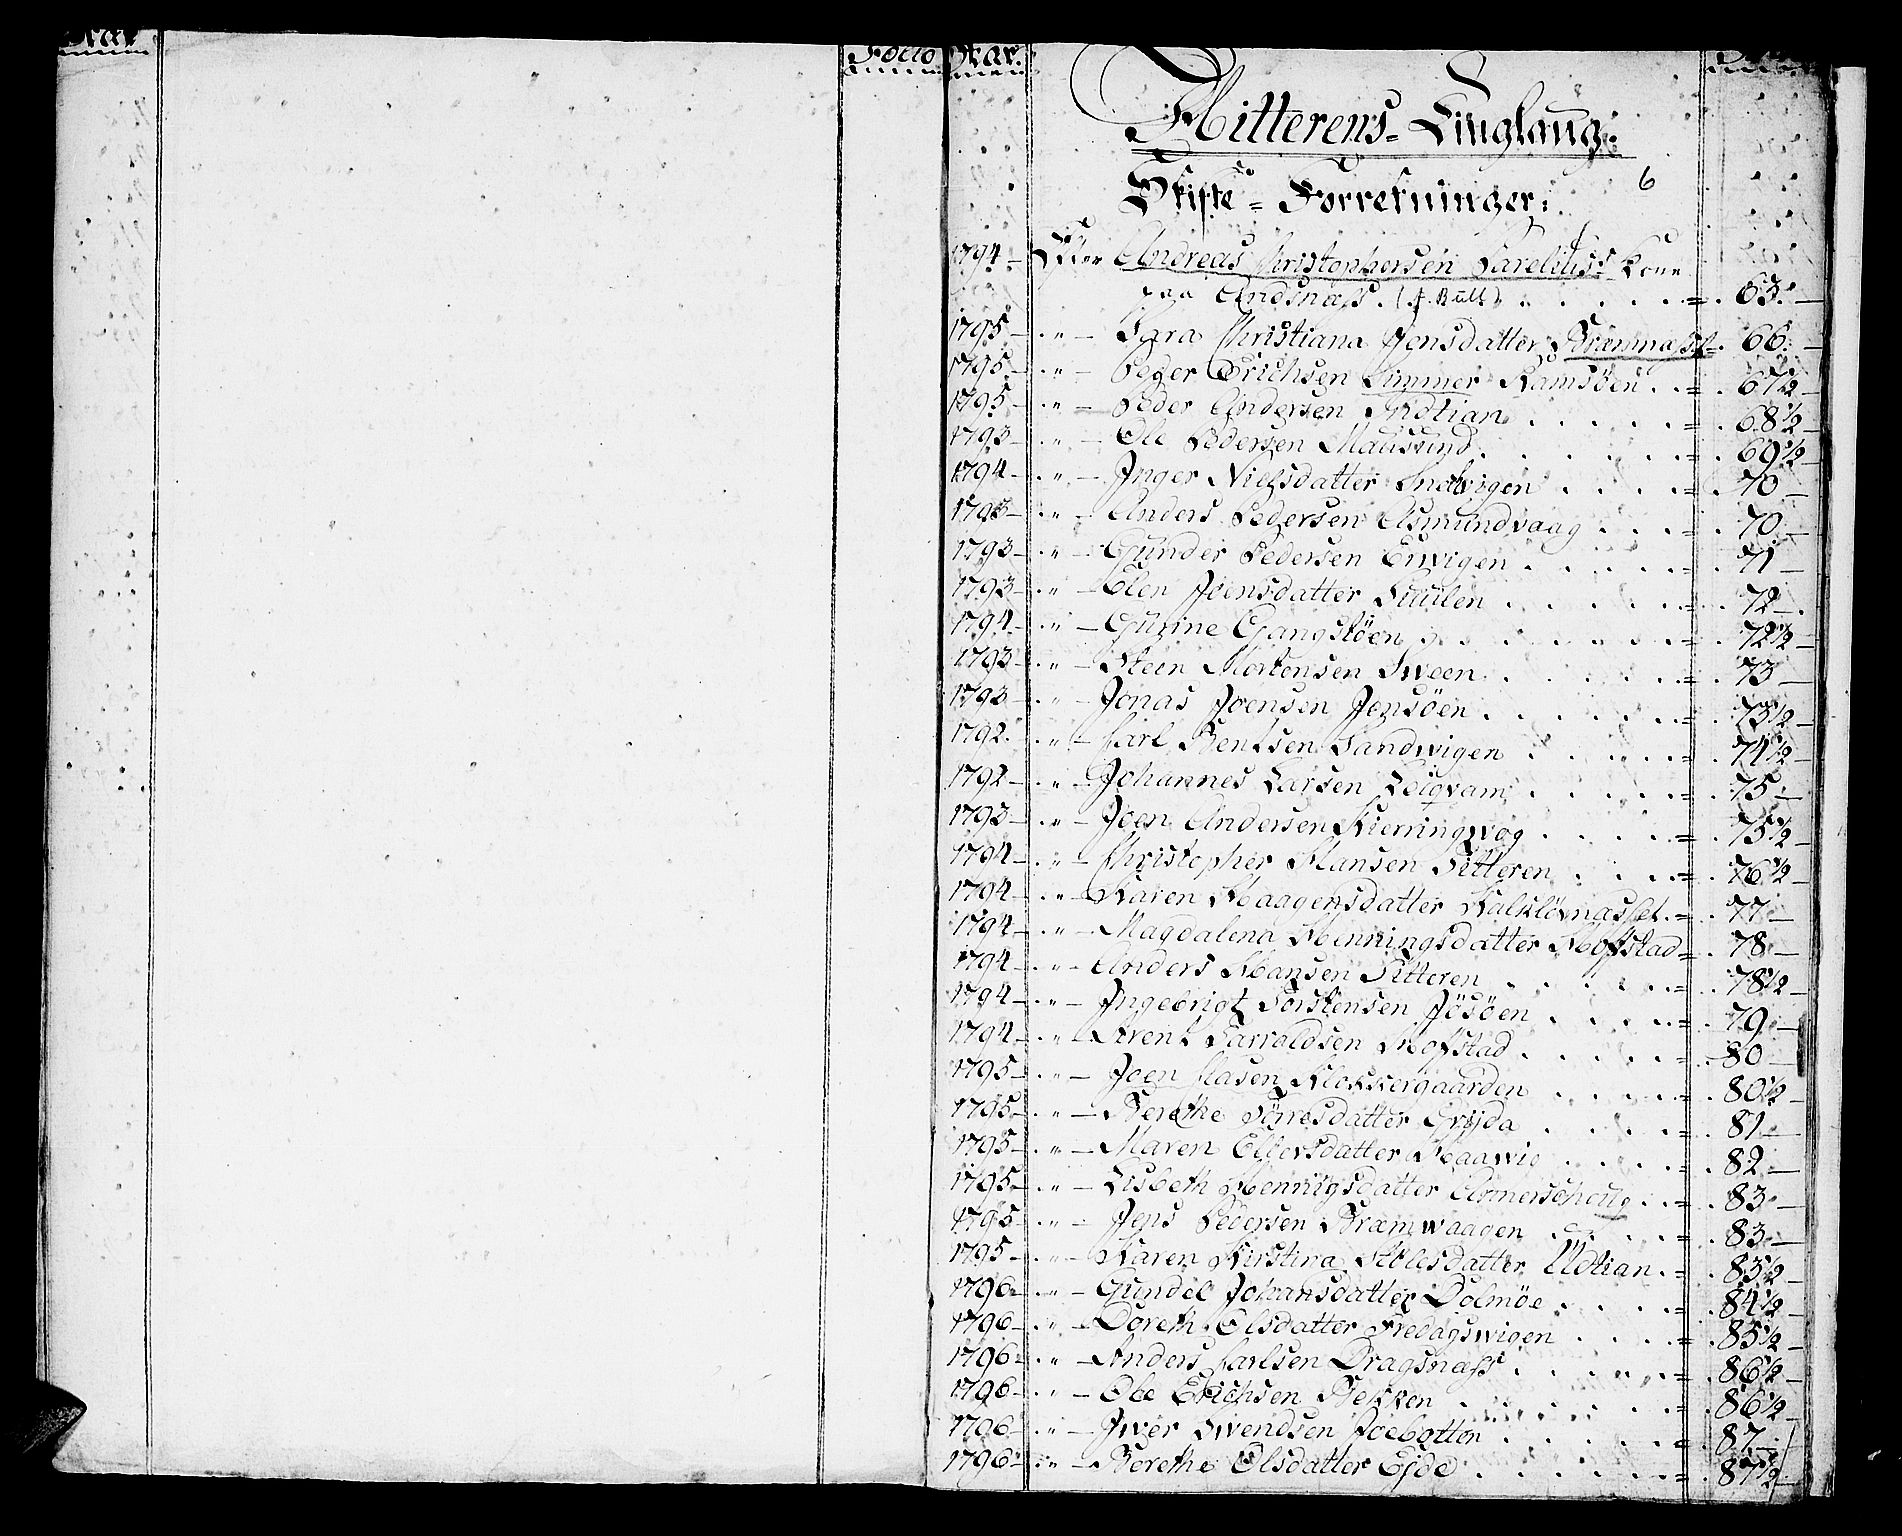 Aar
Folio Aar.
Hitterens-Tinglaug:
Skifte-Forretninger:
6
1794 - Efter Andreas Christophersen Parelius's Kone
paa Andsnæss. (f. Bull) 63 -
1795 - " - Sara Christiana Jensdatter Bræmnæsset 66 -
1795 - " - Peder Erichsen Timmer Ramsöen 67½
1795 - " - Peder Andersen Udtian 68½
1793 - " - Ole Pedersen Mausund 69½
1794 - " - Inger Nielsdatter 70 -
1793 - " - Anders Pedersen Asmundvaag 70 -
1793 - " - Gunder Pedersen Envigen 71 -
1793 - " - Elen Joensdatter Suulen 72 -
1794 - " - Gurine Gangstöen 72½
1793 - " - Steen Mortensen Sween 73 -
1793 - " - Jonas Joensen Jensöen 73½
1792 - " - Carl Bentsen Sandwigen 74½
1792 - " - Johannes Larsen Leiqvam 75 -
1793 - " - Joen Andersen Kierringwog 75½
1794 - " - Christopher Hansen Titteren 76½
1794 - " - Karen Haagensdatter Kalklövnæsset 77 -
1794 - " - Magdalena Henningsdatter Hofstad 78 -
1794 - " - Anders Hansen Titteren 78½
1794 - " - Ingebrigt Torstensen Jösöen 79 -
1794 - " - Arent Harroldsen Hofstad 80 -
1795 - " - Joen Clasen Klokkergaarden 80½
1795 - " - Berethe Törresdatter Grijda 81 -
1795 - " - Maren Ellevsdatter Haawig 82 -
1795 - " - Lisbeth Hennigsdatter Ammerschoug 83 -
1795 - " - Jens Pedersen Bræmwaagen 83 -
1795 - " - Karen Kirstina Nielsdatter Udtian 83½
1796 - " - Gundel Johansdatter Dolmöe 84½
1796 - " - Doreth Olsdatter Fredagswigen 85½
1796 - " - Anders Carlsen Dragsnæss 86½
1796 - " - Ole Erichsen Bekken 86½
1796 - " - Iwer Swendsen Foebotten 87 -
1796 - " - Berethe Olsdatter Ejde 87½